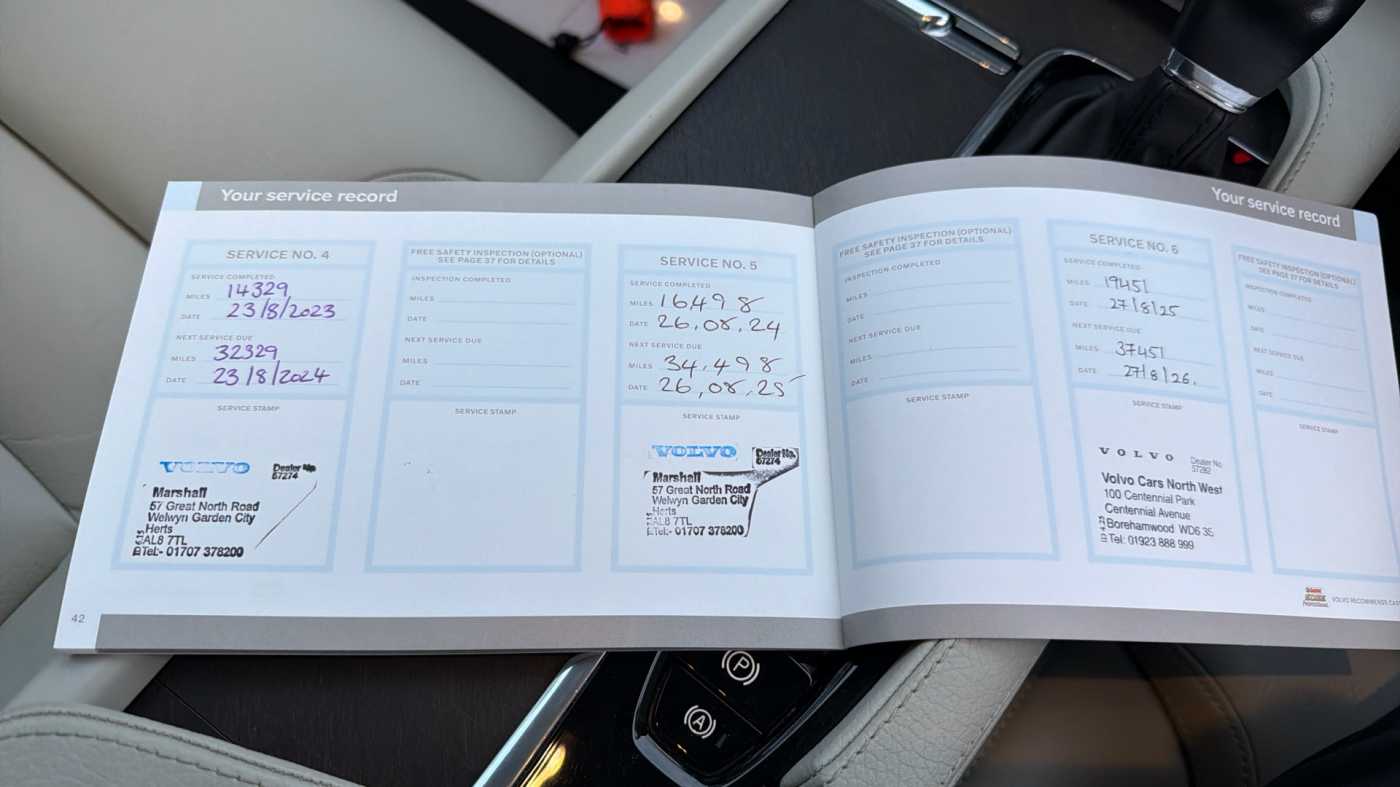 Your service record
SERVICE NO. 4
SERVICE COMPLETED
MILES 14329
DATE 23/8/2023
NEXT SERVICE DUE
MILES 32329
DATE 23/8/2024
SERVICE STAMP
VOLVO
Dealer No.
57274
Marshall
57 Great North Road
Welwyn Garden City
Herts
AL8 7TL
Tel:- 01707 378200
FREE SAFETY INSPECTION (OPTIONAL)
SEE PAGE 37 FOR DETAILS
INSPECTION COMPLETED
MILES
DATE
NEXT SERVICE DUE
MILES
DATE
SERVICE STAMP
SERVICE NO. 5
SERVICE COMPLETED
MILES 16498
DATE 26.08.24
NEXT SERVICE DUE
MILES 34,498
DATE 26,08.25
SERVICE STAMP
VOLVO
Dealer No.
57274
Marshall
57 Great North Road
Welwyn Garden City
Herts
AL8 7TL
Tel:- 01707 378200
42
Your service record
FREE SAFETY INSPECTION (OPTIONAL)
SEE PAGE 37 FOR DETAILS
INSPECTION COMPLETED
MILES
DATE
NEXT SERVICE DUE
MILES
DATE
SERVICE STAMP
SERVICE NO. 6
SERVICE COMPLETED
MILES 19451
DATE 27/8/25
NEXT SERVICE DUE
MILES 37451
DATE 27/8/26.
SERVICE STAMP
VOLVO
Dealer No
57282
Volvo Cars North West
100 Centennial Park
Centennial Avenue
Borehamwood WD6 3S
Tel: 01923 888 999
FREE SAFETY INSPECTION (OPTIONAL)
SEE PAGE 37 FOR DETAILS
INSPECTION COMPLETED
MILES
DATE
NEXT SERVICE DUE
MILES
DATE
SERVICE STAMP
VOLVO RECOMMENDS
P
A